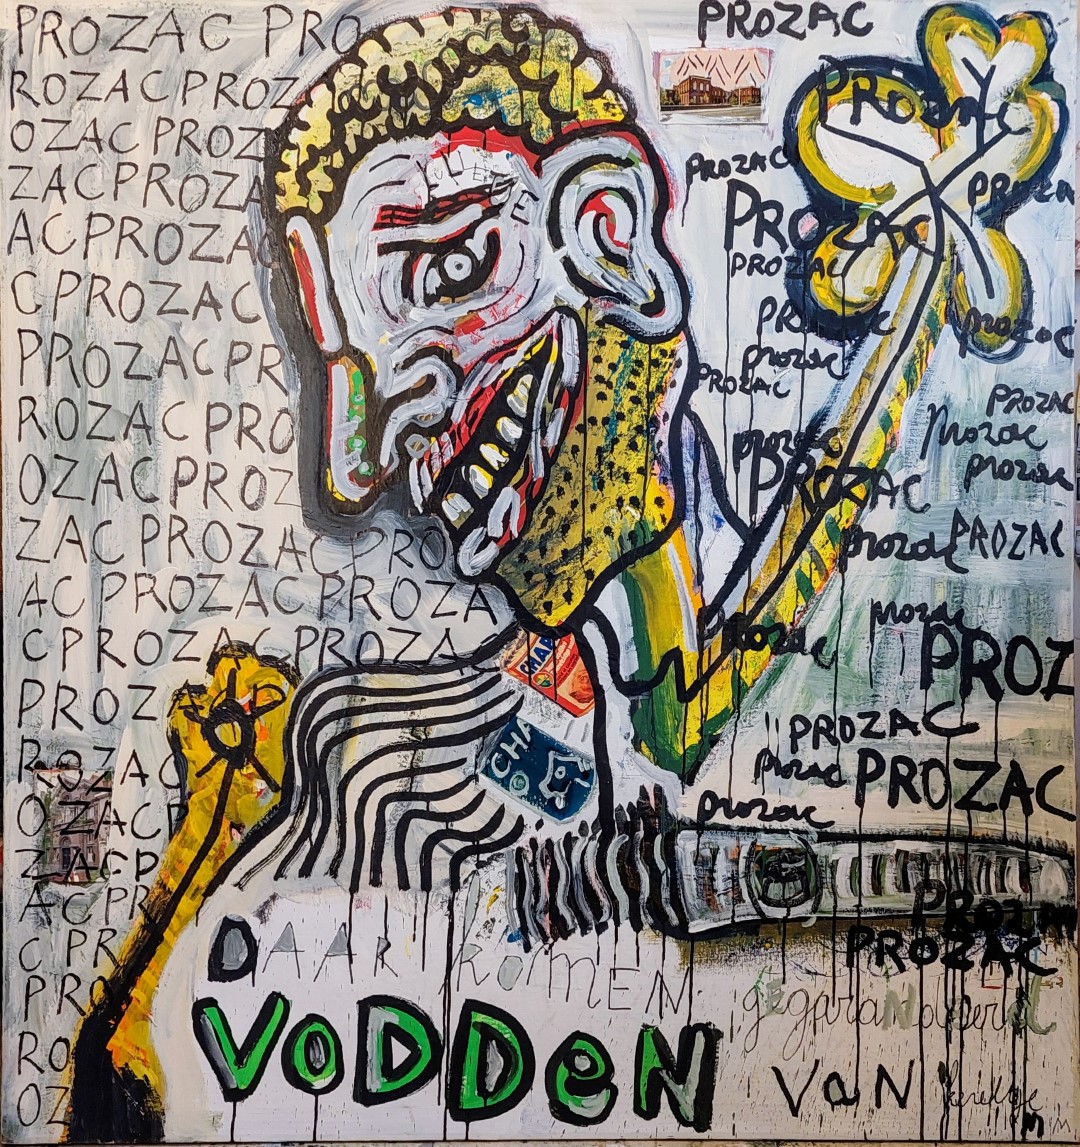 PROZAC PRO
ROZAC PROZ
OZAC PROZ
ZACPROZA
ACPROZAC
CPROZAC
PROZAC PR
ROZAC PRO
OZAC PROZ
ZAC PROZAC PRO
AC PROZAC PROZA
C PROZAC PROZA
PROZ
ROZAC
OZACP
ZACP
ACPR
C PR
PRO
RO
OZ
PROZAC
PROZAC
PROZAC
PROZA
PROZAC
PROZAC
PROZAC
prozac
prozac
PROZAC
PROZAC
prozac
prozac
prozac
PROZAC
prozac
PROZAC
prozac
prozac
PROZ
PROZAC
prozac
PROZAC
prozac
CHA
PROZAC
DAAR KOMEN
gegarandeerd
VODDEN
VAN